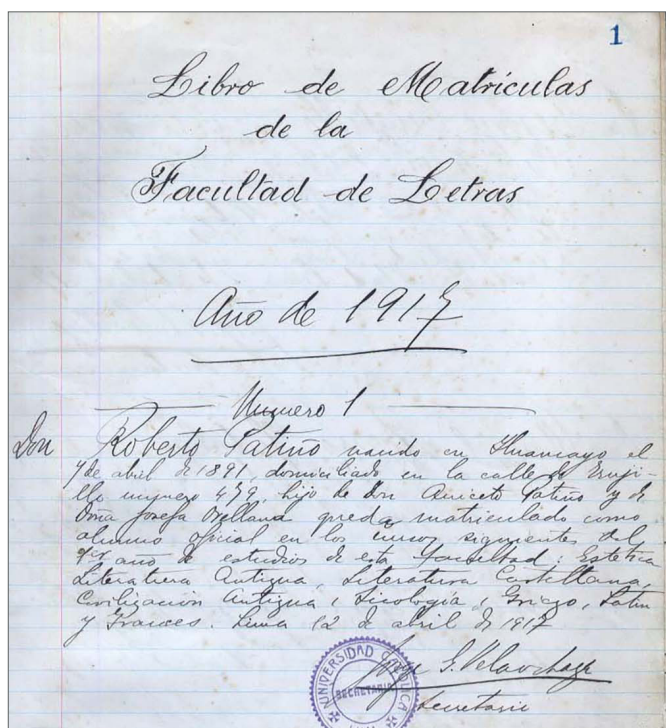 1
Libro de Matrículas
de la
Facultad de Letras
Año de 1917
Numero 1
Don Roberto Patiño nacido en Huancayo el
7 de abril de 1891, domiciliado en la calle de Truji-
llo numero 479, hijo de don Aniceto Patiño y de
doña Josefa Orellana queda matriculado como
alumno oficial en los cursos siguientes del
año de estudios de esta facultad: Estética
Literatura Antigua, Literatura Castellana,
Civilización Antigua, Sicología, Griego, Latin
y Frances. Lima 12 de abril de 1917
UNIVERSIDAD CATOLICA
SECRETARIA
Secretario